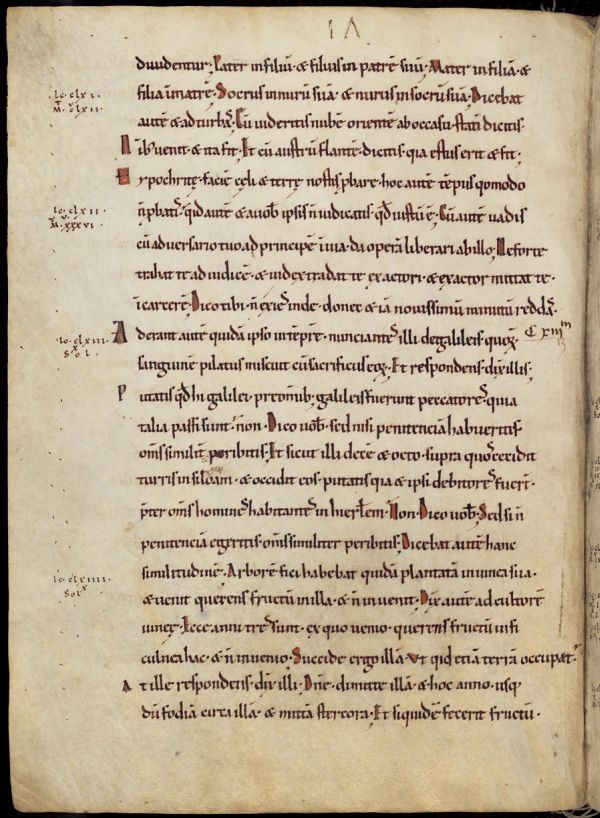 IΛ
diuidentur; Pater in filiū· & filius in patrē suū; Mater in filiā· &
filia in matrē· Socrus in nurū suā· & nurus in socrū suā· Dicebat
lc· clxi·
M̄· clxii·
autē & ad turbas̄· Cū uideritis nubē orientē ab occasu· statī dicitis·
Nīb; uenit· & ita fit· Et cū austrū flantē· dicitis· qia estus erit· & fit;
Hypochritę· faciē cęli & terrę nostis pbare· hoc autē tēpus qomodo
lc· clxii·
M̄· xxxvi·
n̄ pbatis̄· qid autē & a uob̄ ipsis n̄ iudicatis· qd̄ iustū ē; Cū autē uadis
cū aduersario tuo ad principē ī uia· da operā liberari ab illo· Ne forte
trahat te ad iudicē· & iudex tradat te exactori· & exactor mittat te·
ī carcerē· Dico tibi· n̄ exies̄ inde· donec & iā nouissimū minutū reddas̄·
lc· clxiii·
sol·
Aderant autē quidā ipso in tēpr̄e· nunciantes̄ illi de galileis· quoꝝ
C xiiii
sanguinē pilatus miscuit cū sacrificiis eoꝝ· Et respondens· dix̄ illis;
Putatis qd̄ hi galilei· pre omīb; galileis fuerunt peccatores̄· quia
talia passi sunt· non· Dico uob̄· sed nisi penitenciā habueritis·
om̄s similit̄ peribitis· Et sicut illi decē & octo· supra quos̄ cecidit
turris in siloam· & occidit eos· putatis qia & ipsi debitores̄ fuer̄t·
p̄ter om̄s homines̄ habitantes̄ in hierł̄em· Non· Dico uob̄· Sed si n̄
penitenciā egeritis· om̄s similiter peribitis; Dicebat autē hanc
similitudinē· Arborē fici habebat quidā plantatā in uinea sua·
lc· clxiiii·
sol x
& uenit querens fructū in illa· & n̄ inuenit· Dix̄ autē ad cultorē
uineę· Ecce anni tres̄ sunt· ex quo uenio· querens fructū in fi
culnea hac· & n̄ inuenio· Succide ergo illā· Vt qid etiā terrā occupat·
At ille respondens· dix̄ illi· Dn̄e· dimitte illā & hoc anno· usq
dū fodiā circa illā· & mittā stercora· Et siquidē fecerit fructū·